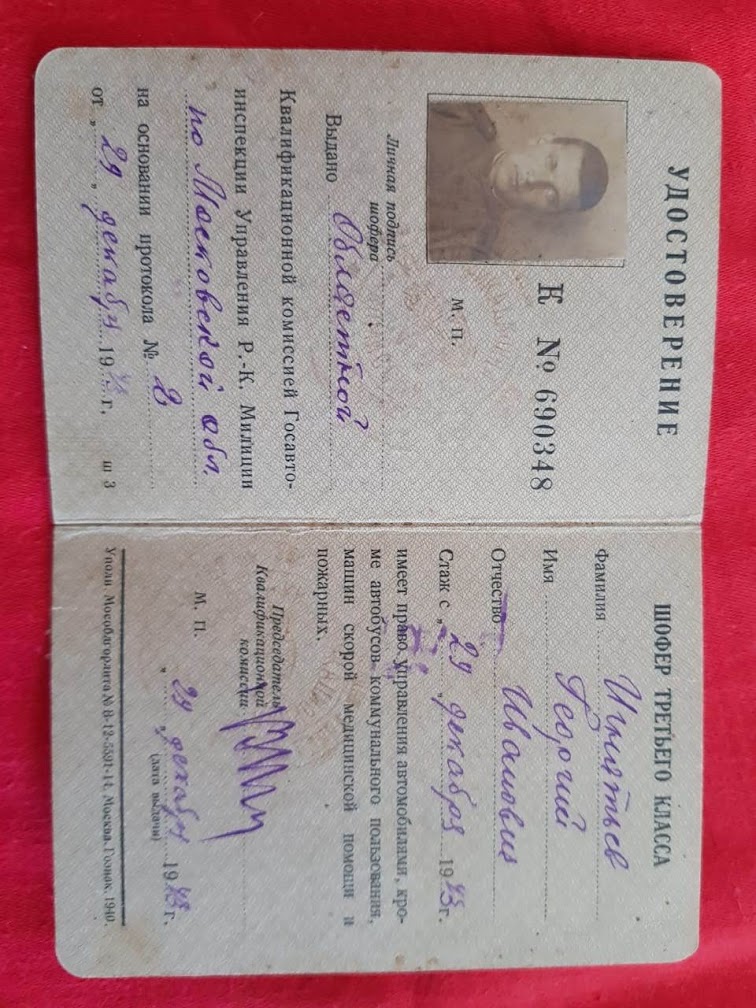 УДОСТОВЕРЕНИЕ
К № 690348
М. П.
Личная подпись
шофера
Выдано Областной
Квалификационной комиссией Госавто-
инспекции Управления Р.-К. Милиции
по Московской обл.
на основании протокола № 2
от „29„ декабря 1943 г.
ш 3
ШОФЕР ТРЕТЬЕГО КЛАССА
Фамилия Игнатьев
Имя Георгий
Отчество Иванович
Стаж с „29„ декабря 1943 г.
имеет право управления автомобилями, кро-
ме автобусов коммунального пользования,
машин скорой медицинской помощи и
пожарных.
Председатель
Квалификационной
комиссии
М. П.
„29„ декабря 1943 г.
(дата выдачи)
Уполн. Мособлгорлита № В-12-5591-14. Москва. Гознак. 1940.